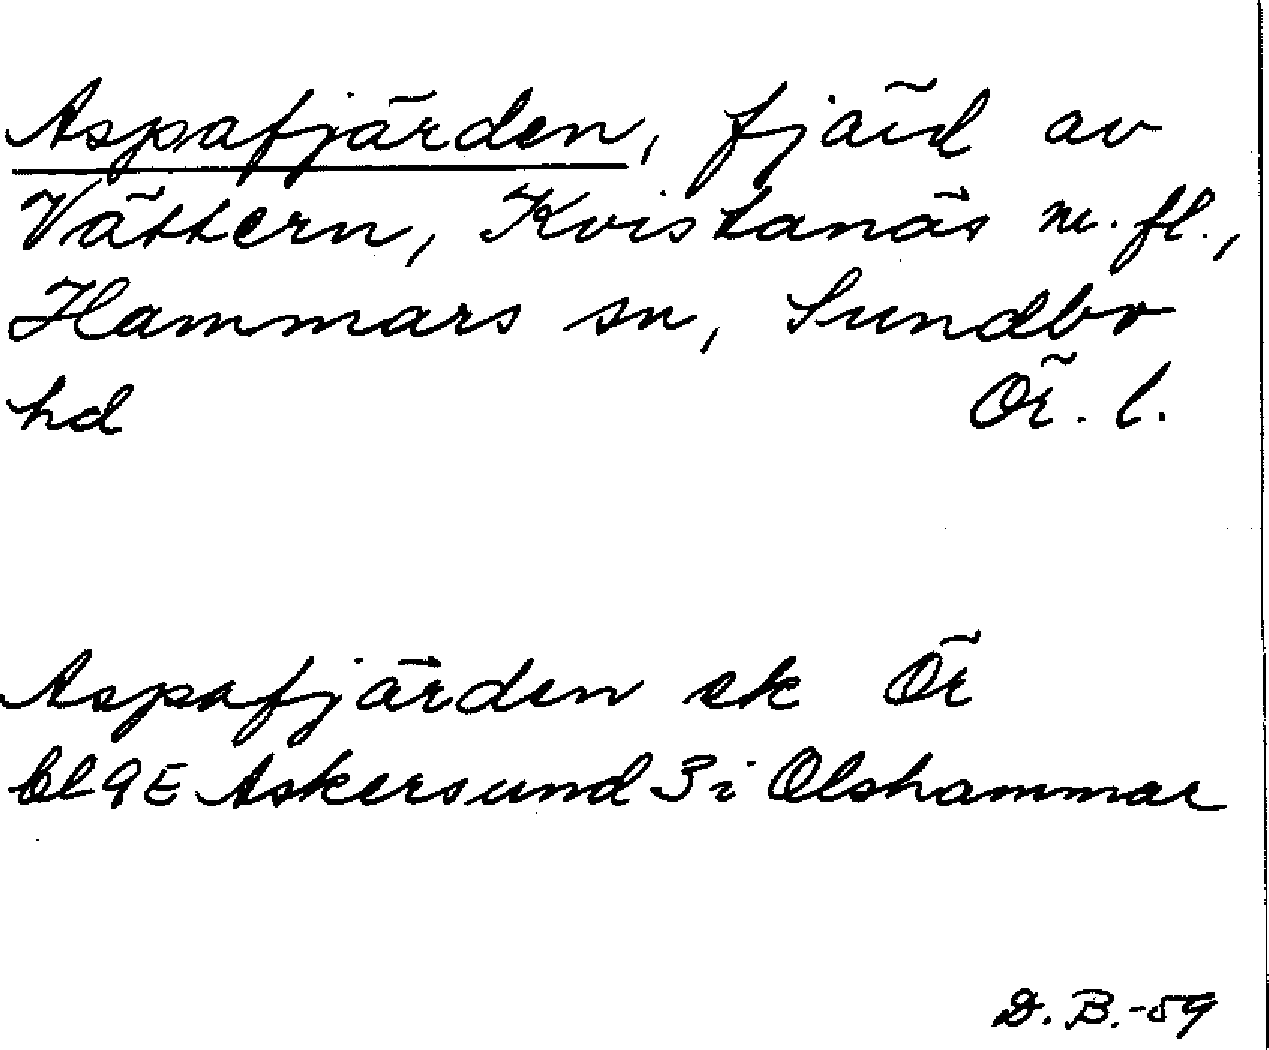 Aspafjärden, fjärd av
Vättern, Kvistanäs m. fl.,
Hammars sn, Sundbo
hd Ör. l.
Aspafjärden ek Ör
bl 9E Askersund 3i Olshammar
D. B. -59